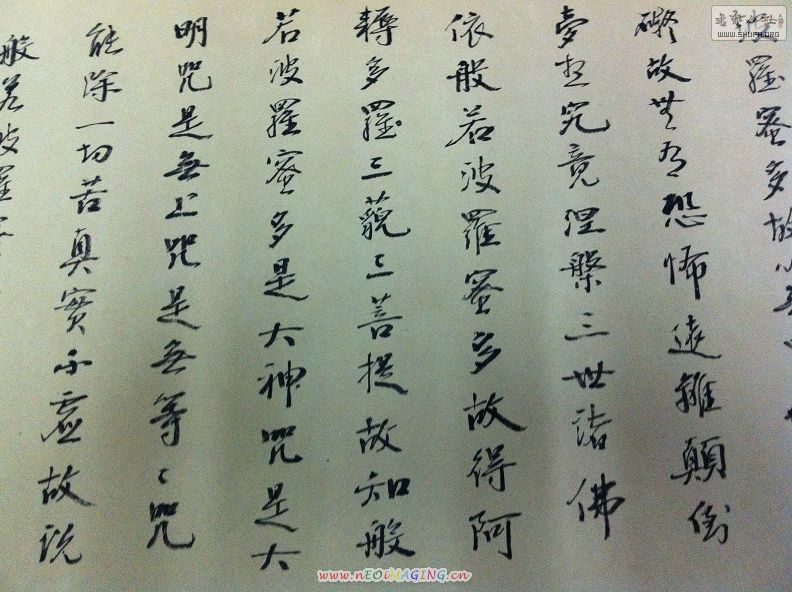 羅蜜多故心無
礙故無有恐怖遠離顛倒
夢想究竟涅槃三世諸佛
依般若波羅蜜多故得阿
耨多羅三藐三菩提故知般
若波羅蜜多是大神咒是大
明咒是無上咒是無等〻咒
能除一切苦真實不虛故說
般若波羅
WWW.SHUFA.ORG
www.nEOiMAGiNG.cn